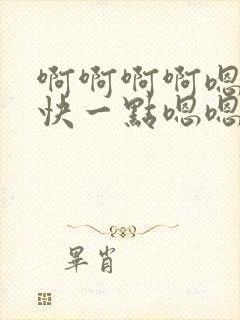 啊啊啊啊嗯
快一點嗯嗯
畢肖